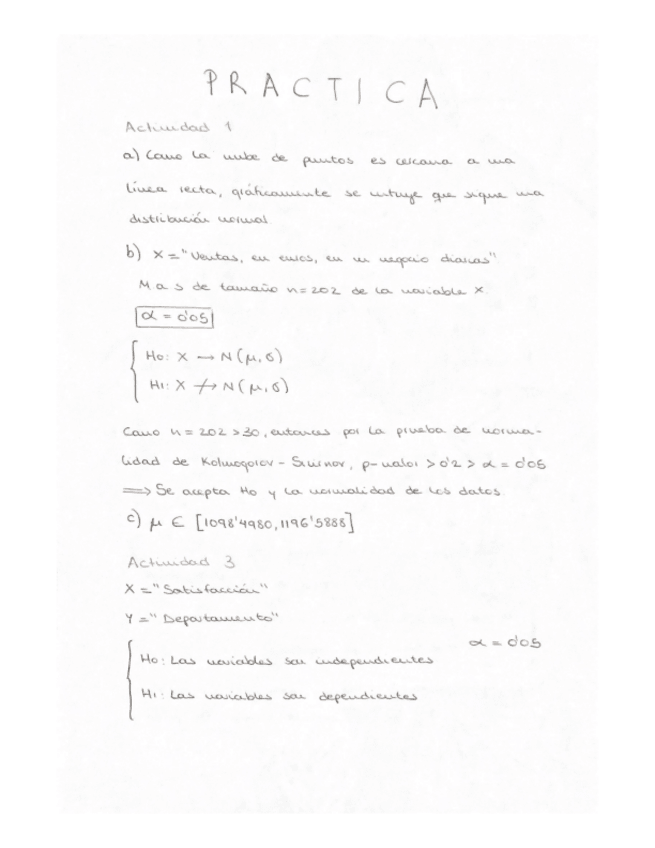 PRACTICA
Actividad 1
a) Como la nube de puntos es cercana a una
línea recta, gráficamente se intuye que sigue una
distribución normal.
b) X = "Ventas, en euros, en un negocio diarias"
M a s de tamaño n = 202 de la variable X.
α = 0'05
H0: X → N(μ, σ)
H1: X ↛ N(μ, σ)
Como n = 202 > 30, entonces por la prueba de norma-
lidad de Kolmogorov - Smirnov, p-valor > 0'2 > α = 0'05
⟹ Se acepta H0 y la normalidad de los datos.
c) μ ∈ [1098'4980, 1196'5888]
Actividad 3
X = "Satisfacción"
Y = "Departamento"
α = 0'05
H0: Las variables son independientes
H1: Las variables son dependientes